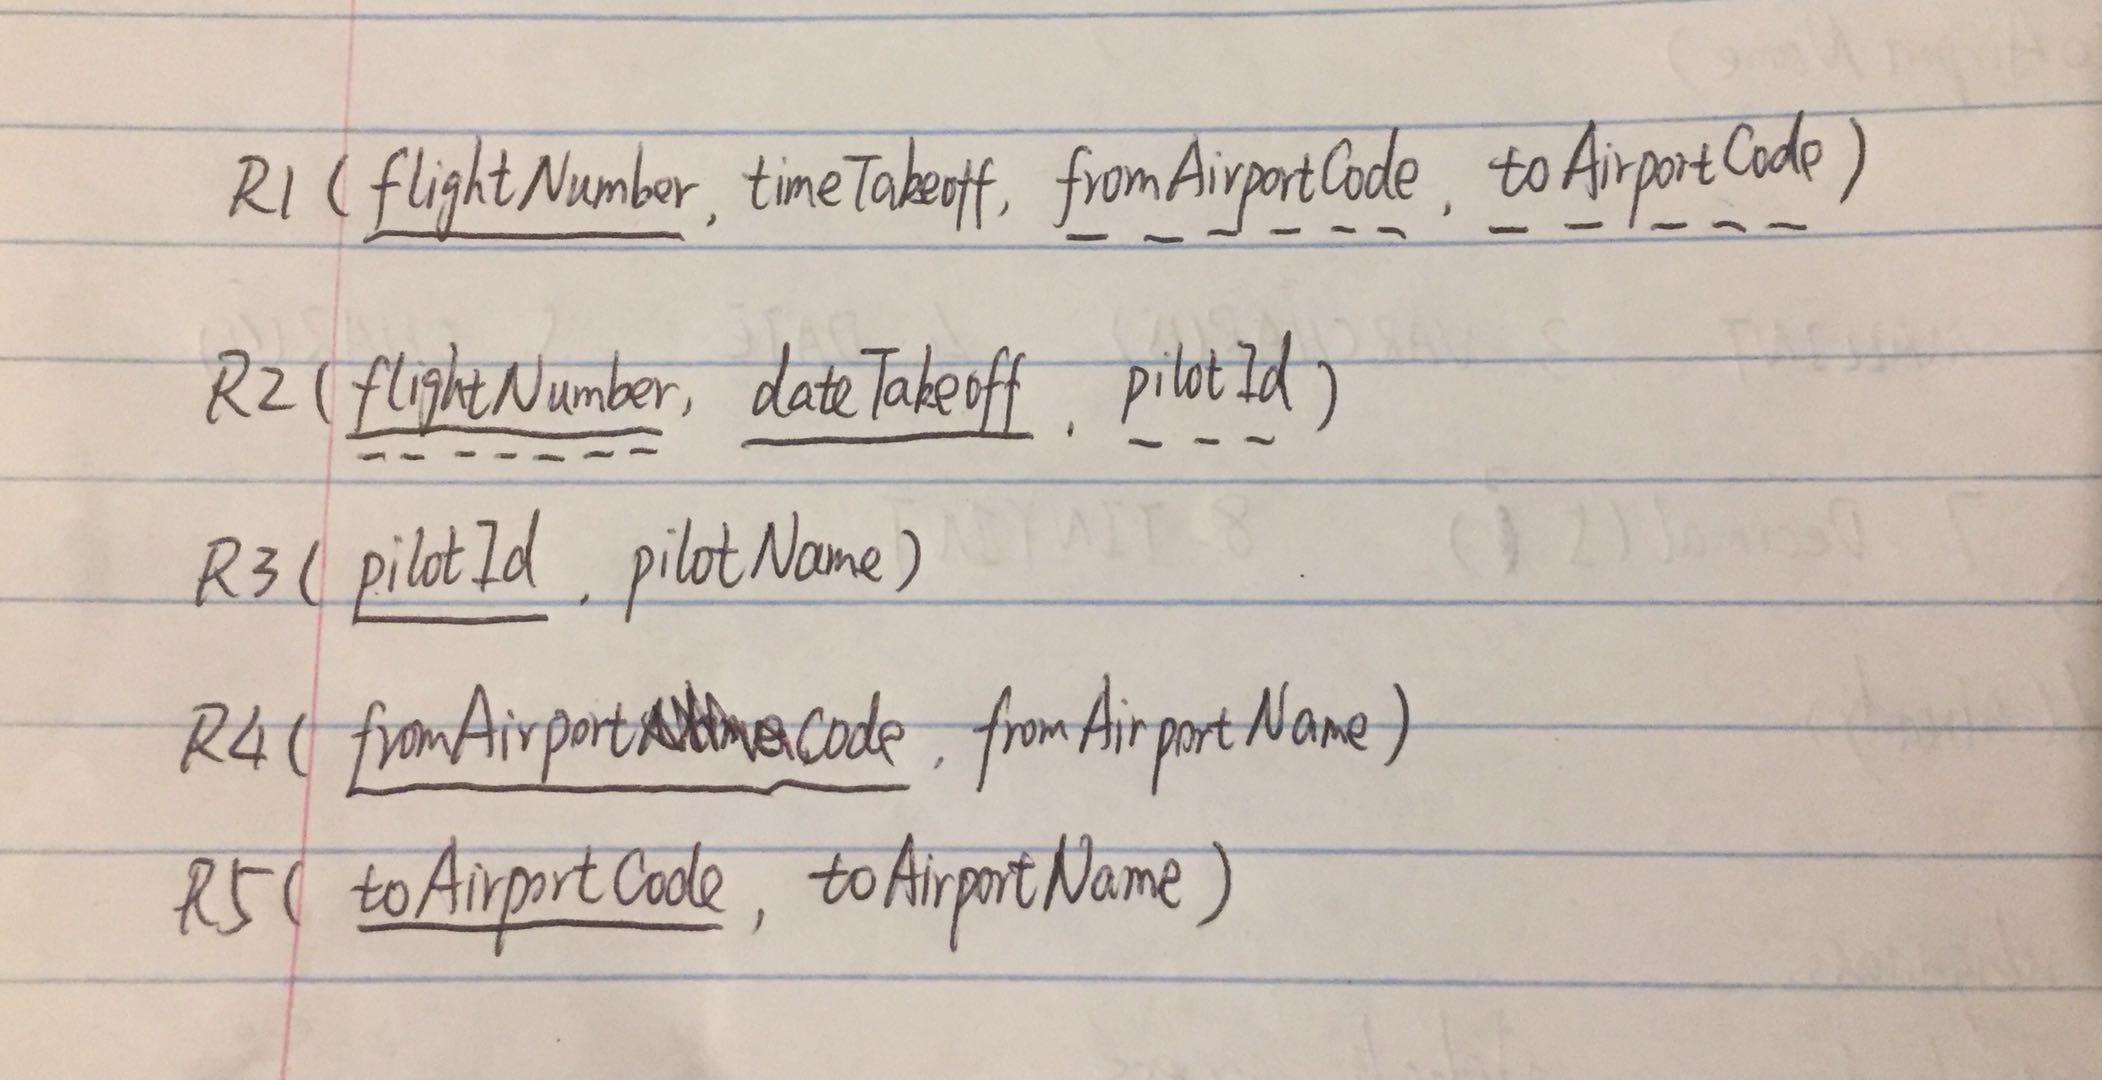 R1 ( flightNumber, timeTakeoff, fromAirportCode, toAirportCode )
R2 ( flightNumber, dateTakeoff, pilotId )
R3 ( pilotId, pilotName )
R4 ( fromAirportCode, fromAirportName )
R5 ( toAirportCode, toAirportName )